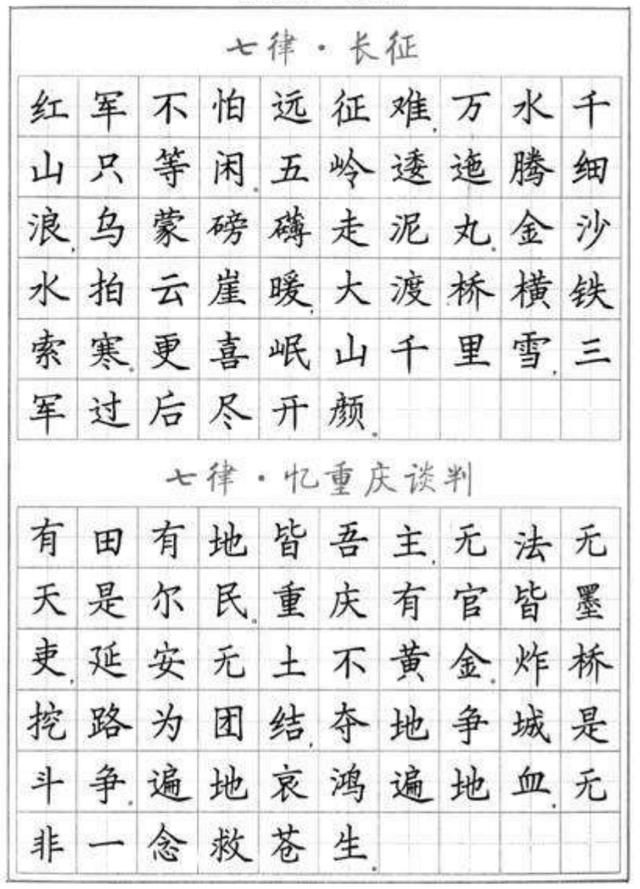 七律·长征
红军不怕远征难,万水千
山只等闲。五岭逶迤腾细
浪,乌蒙磅礴走泥丸。金沙
水拍云崖暖,大渡桥横铁
索寒。更喜岷山千里雪,三
军过后尽开颜。
七律·忆重庆谈判
有田有地皆吾主,无法无
天是尔民。重庆有官皆墨
吏,延安无土不黄金。炸桥
挖路为团结,夺地争城是
斗争。遍地哀鸿遍地血,无
非一念救苍生。